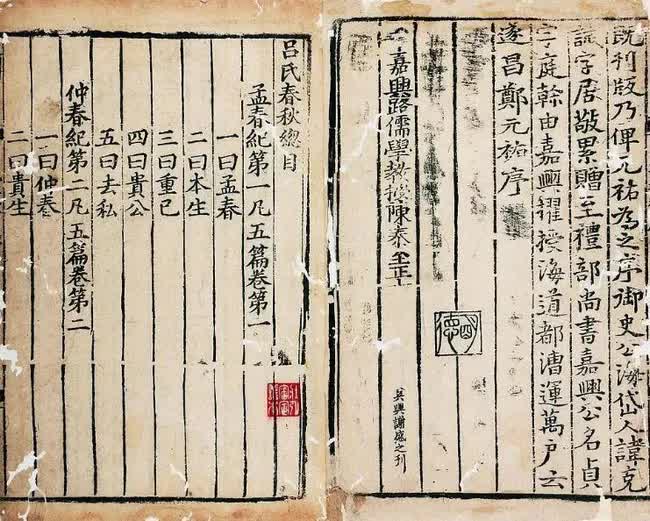 既刋版乃俾元祐為之序御史公海岱人諱克
誠字居敬累贈至禮部尚書嘉興公名貞
字庭幹由嘉興擢授海道都漕運萬户云
遂昌鄭元祐序
嘉興路儒學教授陳泰至正
吳興謝盛之刊
吕氏春秋總目
孟春紀第一凡五篇卷第一
一曰孟春
二曰本生
三曰重己
四曰貴公
五曰去私
仲春紀第二凡五篇卷第二
一曰仲春
二曰貴生